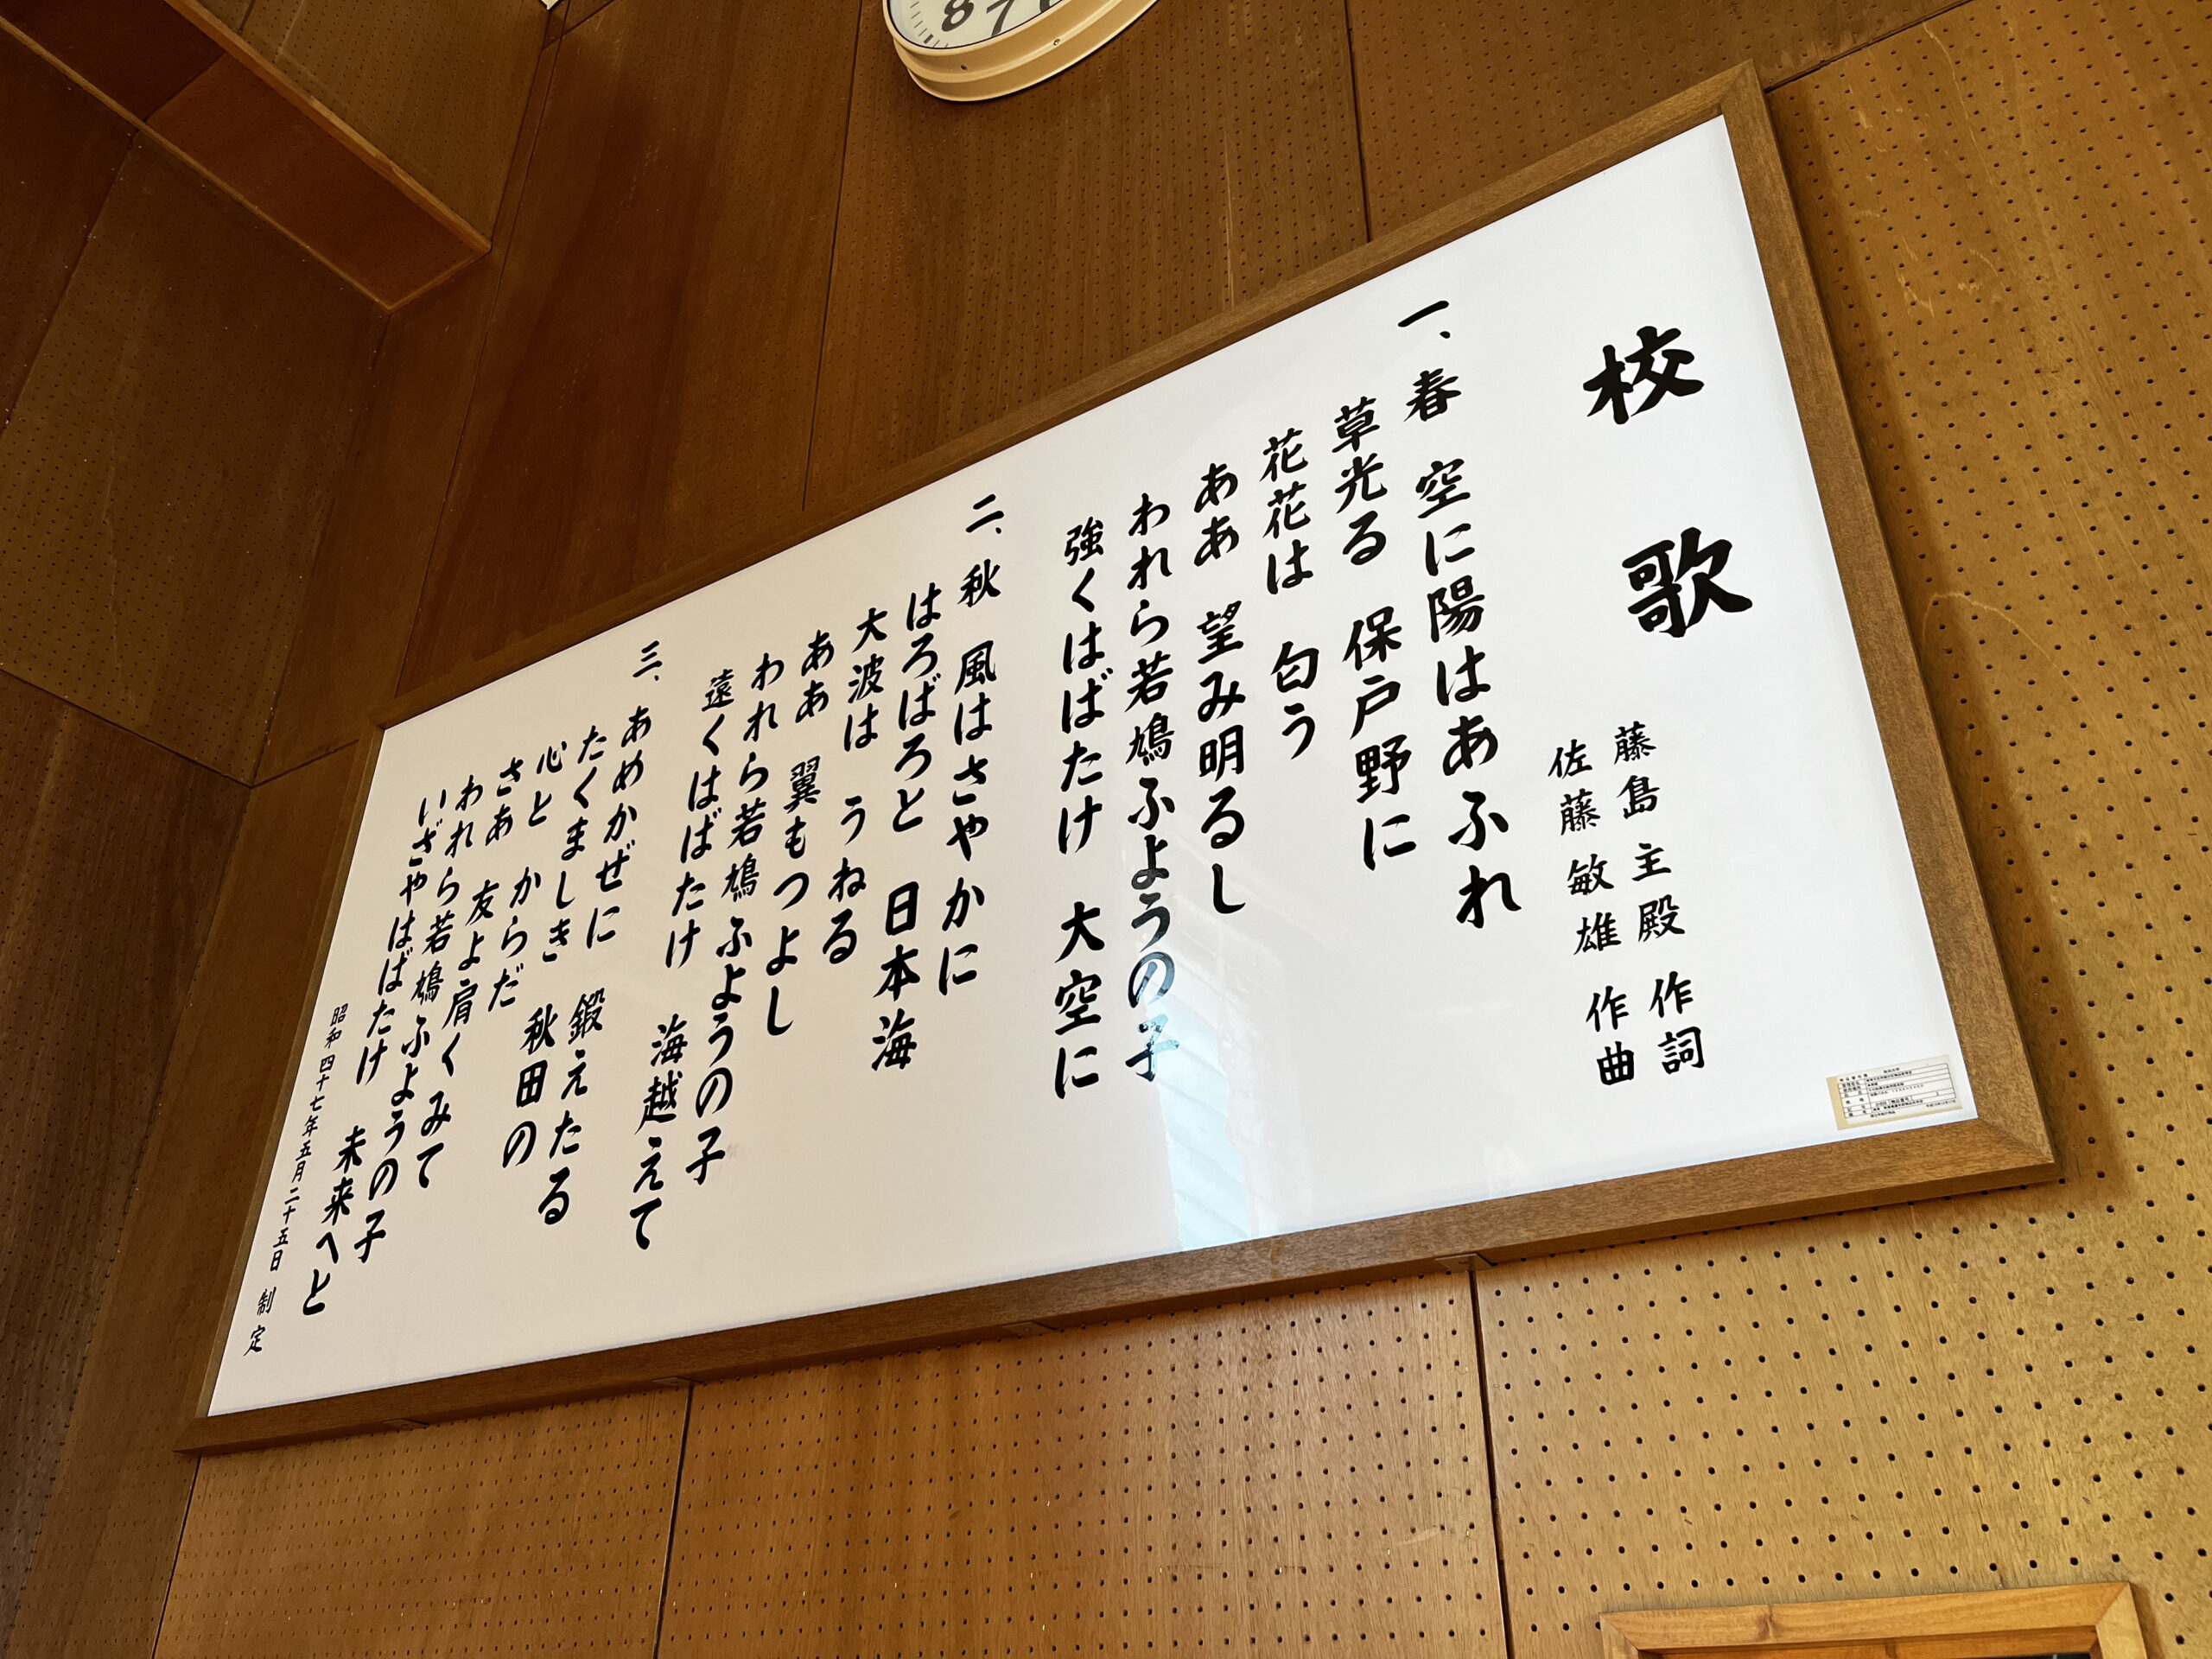 校歌
藤島主殿 作詞
佐藤敏雄 作曲
一、春 空に陽はあふれ
草光る 保戸野に
花花は 匂う
ああ 望み明るし
われら若鳩ふようの子
強くはばたけ 大空に
二、秋 風はさやかに
はろばろと 日本海
大波は うねる
ああ 翼もつよし
われら若鳩ふようの子
遠くはばたけ 海越えて
三、あめかぜに 鍛えたる
たくましき 秋田の
心と からだ
さあ 友よ肩くみて
われら若鳩ふようの子
いざやはばたけ 未来へと
昭和四十七年五月二十五日 制定
8 7